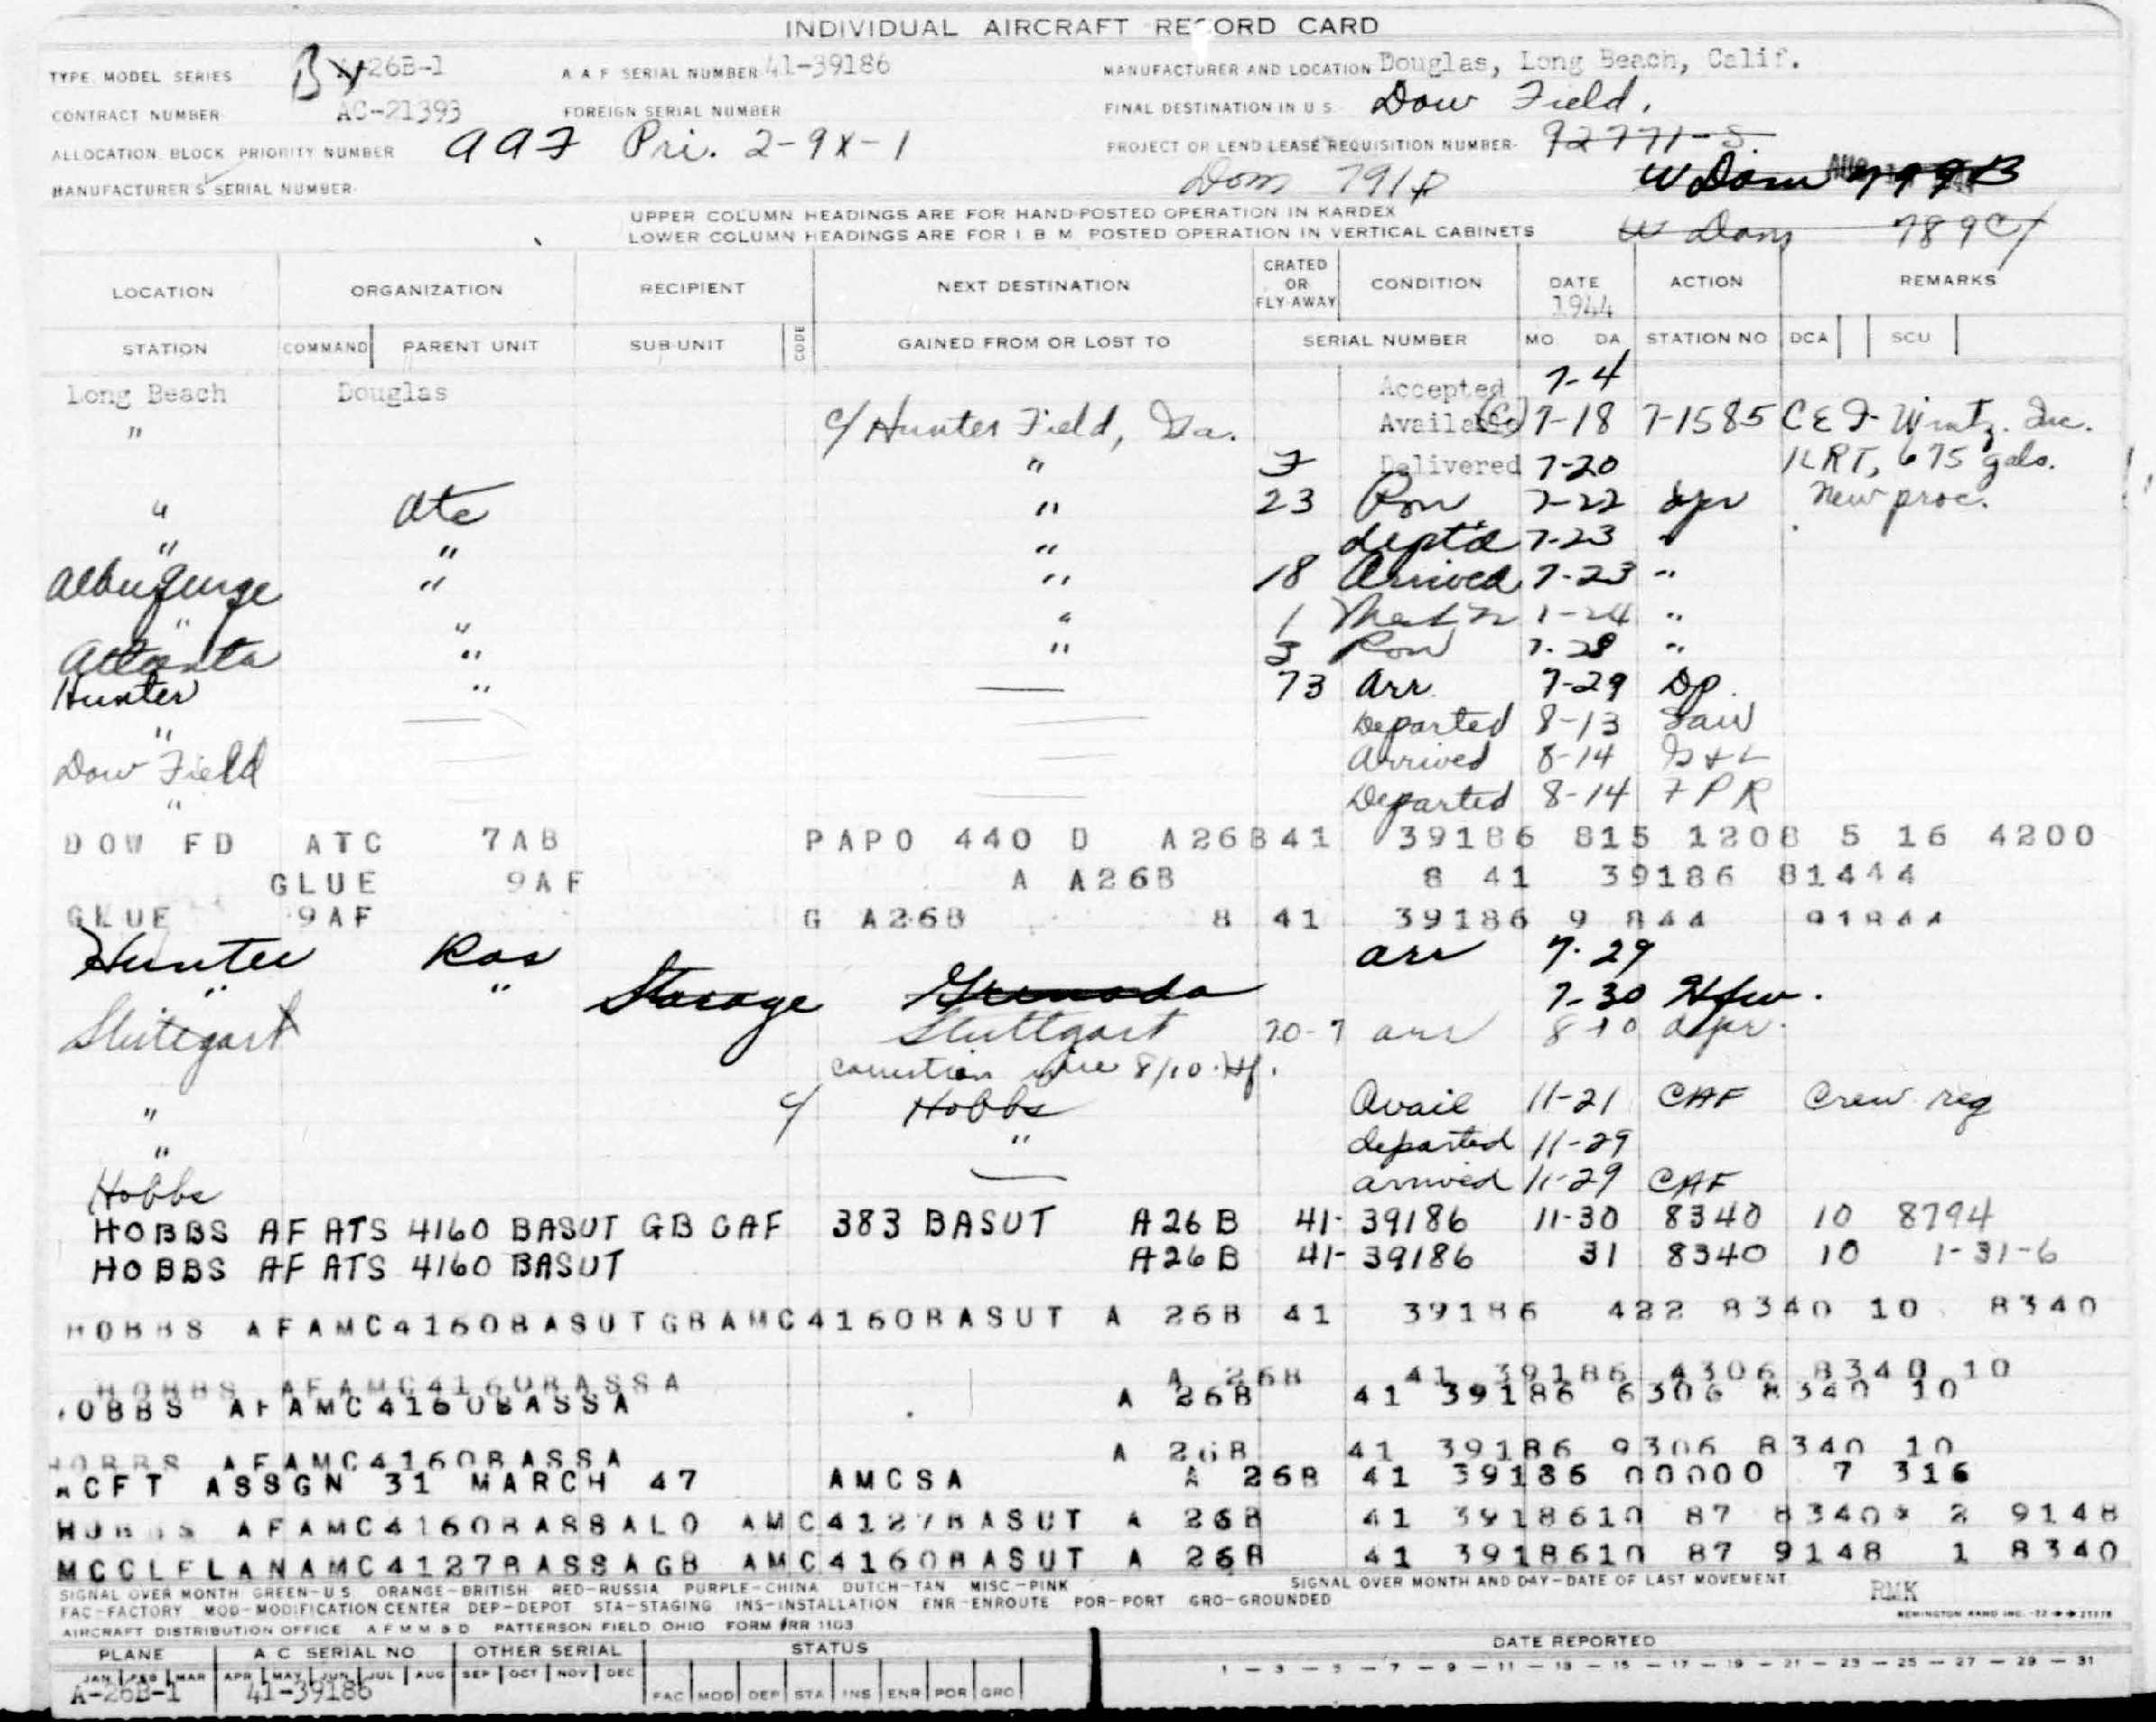 INDIVIDUAL AIRCRAFT RECORD CARD
TYPE, MODEL SERIES B 26B-1 A A F SERIAL NUMBER 41-39186 MANUFACTURER AND LOCATION Douglas, Long Beach, Calif.
CONTRACT NUMBER AC-21393 FOREIGN SERIAL NUMBER FINAL DESTINATION IN U S Dow Field.
ALLOCATION BLOCK PRIORITY NUMBER AAF Pri. 2-9X-1 PROJECT OR LEND LEASE REQUISITION NUMBER 92771-S.
MANUFACTURER'S SERIAL NUMBER Dom 791 W Dom 799B
UPPER COLUMN HEADINGS ARE FOR HAND-POSTED OPERATION IN KARDEX
LOWER COLUMN HEADINGS ARE FOR I B M POSTED OPERATION IN VERTICAL CABINETS W Dom 789C
LOCATION ORGANIZATION RECIPIENT NEXT DESTINATION CRATED OR FLY-AWAY CONDITION DATE 1944 ACTION REMARKS
STATION COMMAND PARENT UNIT SUB-UNIT CODE GAINED FROM OR LOST TO SERIAL NUMBER MO DA STATION NO DCA SCU
Long Beach Douglas Accepted 7-4
" c/ Hunter Field, Ga. Available (C) 7-18 7-1585 C E F Wintz. Inc.
" F Delivered 7-20 1LRT, 675 gals.
" Atc " 23 Ron 7-22 New proc.
" " " dept'd 7-23 "
Albuquerque " " 18 Arrived 7-23 "
" " " 1 24 "
Atlanta " " 3 Ron 7-28 "
Hunter " — 73 Arr. 7-29 Dp.
" — — Departed 8-13
Dow Field — Arrived 8-14 G+L
" — Departed 8-14 FPR
DOW FD ATC 7AB PAPO 440 D A26B41 39186 815 1208 5 16 4200
GLUE 9AF A A26B 8 41 39186 81444
GLUE 9AF G A26B 8 41 39186 9 844 91844
Hunter arr 7-29
" " Storage Grenada 7-30 Hfw.
Stuttgart Stuttgart 70-7 arr 8-10
wire 8/10 Hf.
" c/ Hobbs Avail 11-21 CAF Crew reg
" " departed 11-29
Hobbs — arrived 11-29 CAF
HOBBS AF ATS 4160 BASUT GB CAF 383 BASUT A26B 41-39186 11-30 8340 10 8794
HOBBS AF ATS 4160 BASUT A26B 41-39186 31 8340 10 1-31-6
HOBBS AFAMC4160BASUTGBAMC4160BASUT A 26B 41 39186 422 8340 10 8340
HOBBS AFAMC4160BASSA A 26B 41 39186 4306 8340 10
HOBBS AFAMC4160BASSA A 26B 41 39186 6306 8340 10
HOBBS AFAMC4160BASSA A 26B 41 39186 9306 8340 10
ACFT ASSGN 31 MARCH 47 AMCSA A 26B 41 39186 00000 7 316
HOBBS AFAMC4160BASSALO AMC4127BASUT A 26B 41 3918610 87 8340 2 9148
MCCLELANAMC4127BASSAGB AMC4160BASUT A 26B 41 3918610 87 9148 1 8340
SIGNAL OVER MONTH GREEN-U S ORANGE-BRITISH RED-RUSSIA PURPLE-CHINA DUTCH-TAN MISC-PINK SIGNAL OVER MONTH AND DAY-DATE OF LAST MOVEMENT RMK
FAC-FACTORY MOD-MODIFICATION CENTER DEP-DEPOT STA-STAGING INS-INSTALLATION ENR-ENROUTE POR-PORT GRO-GROUNDED
AIRCRAFT DISTRIBUTION OFFICE A F M M & D PATTERSON FIELD OHIO FORM #RR 1103
PLANE A C SERIAL NO OTHER SERIAL STATUS DATE REPORTED
JAN FEB MAR APR MAY JUN JUL AUG SEP OCT NOV DEC 1 - 3 - 5 - 7 - 9 - 11 - 13 - 15 - 17 - 19 - 21 - 23 - 25 - 27 - 29 - 31
A-26B-1 41-39186 FAC MOD DEP STA INS ENR POR GRO